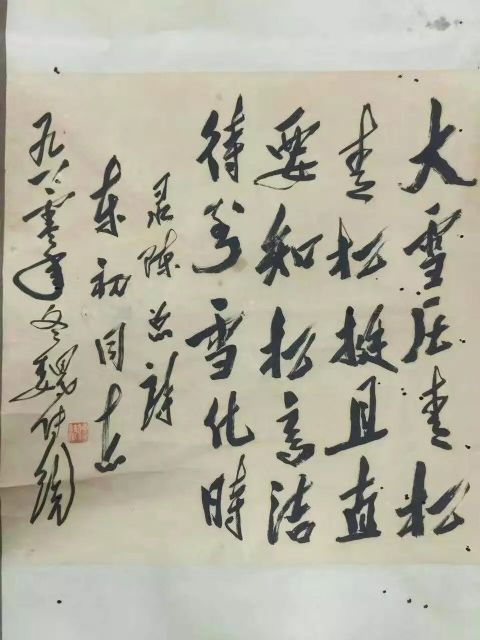 大雪压青松
青松挺且直
要知松高洁
待到雪化時
录陈总诗
东初同志
九八零年冬魏传统